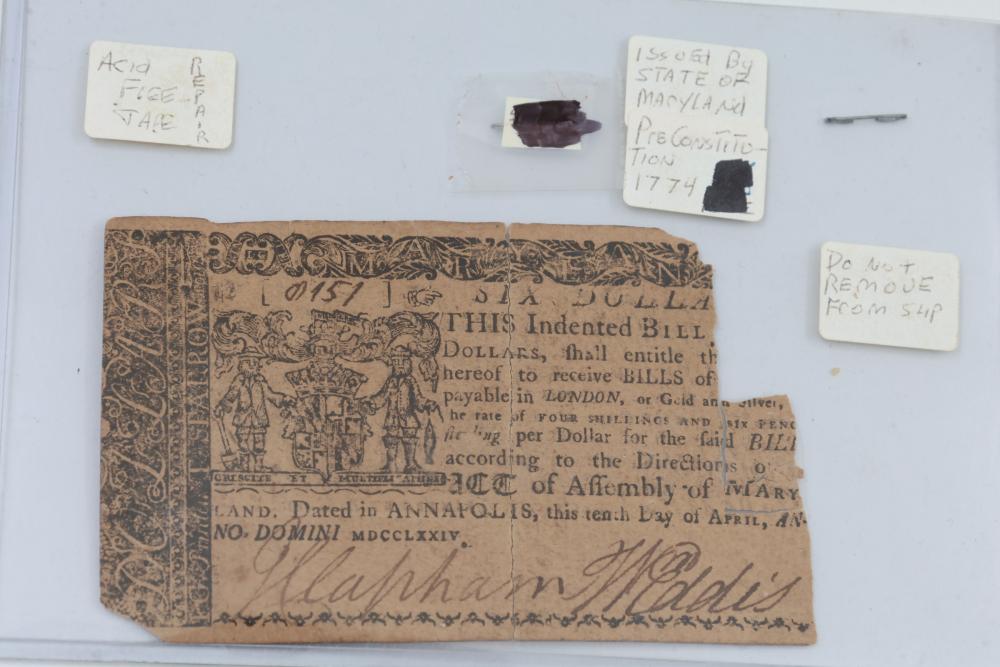 Acid
Free
TAPE
REPAIR
ISSUED By
STATE OF
MARYLAND
PreConstitu-
tion
1774
Do Not
REMOVE
From Slip
MARYLAN
[ 8151 ]
SIX DOLLA
THIS Indented BILL
DOLLARS, shall entitle th
hereof to receive BILLS of
payable in LONDON, or Gold and Silver,
he rate of FOUR SHILLINGS AND SIX PENC
per Dollar for the said BILL
according to the Directions o
ACT of Assembly of MARY
LAND. Dated in ANNAPOLIS, this tenth Day of APRIL, AN-
NO DOMINI MDCCLXXIV.
CRESCITE ET MULTIPLICAMINI
JClapham WEddis